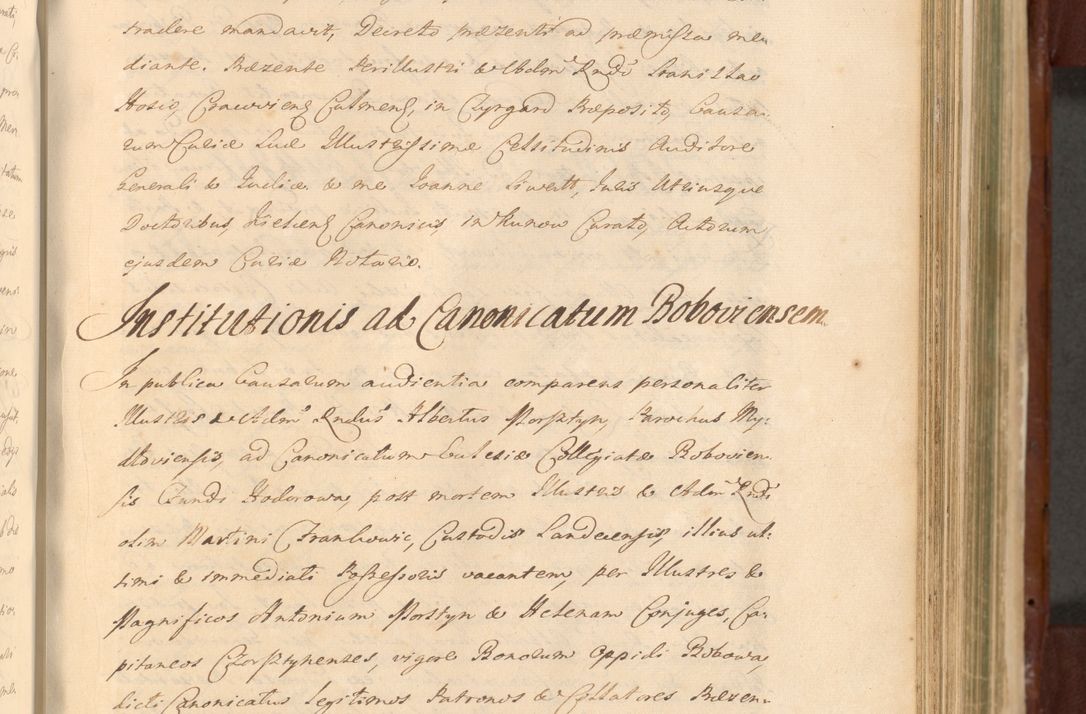 tradere mandavit, Decreto præzenti ad præmissa me-
diante. Præzente Perillustri & Adm. Rndo Stanislao
Hosio, Cracovien, Culmen, in Czyrgard Præposito, Causa-
rum Curiæ Suæ Illustrissimæ Celsitudinis Auditore
Generali & Iudice & me Ioanne Siwertt, Iuris Utriusque
Doctoribus, Kielcen Canonicis, in Kunow Curato, Actorum
ejusdem Curiæ Notario.
Institutionis ad Canonicatum Boboviensem
In publica Causarum audientia comparens personaliter
Illustris & Adm. Rndus Albertus Morsztyn, Parochus My-
dloviensis, ad Canonicatum Ecclesiæ Collegiatæ Bobovien-
sis Fundi Hodorowa, post mortem Illustris & Adm. Rndi
olim Martini Frankowic, Custodis Sandecensis, illius ul-
timi & immediati Possessoris vacantem, per Illustres &
Magnificos Antonium Morsztyn & Helenam Conjuges, Ca-
pitaneos Czorsztynenses, vigore Bonorum Oppidi Bobowa,
dicti Canonicatus legitimos Patronos & Collatores Præzen-